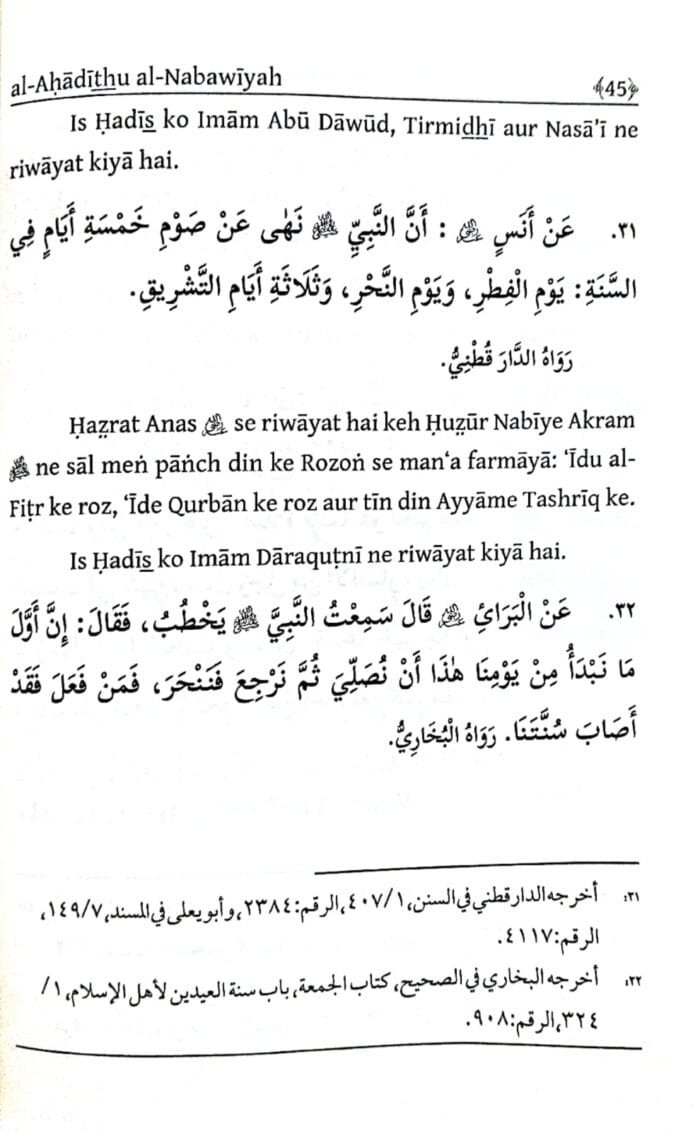 al-Aḥādīt͟hu al-Nabawīyah
﴾45﴿
Is Ḥadīs̲ ko Imām Abū Dāwūd, Tirmid͟hī aur Nasā’ī ne
riwāyat kiyā hai.
٣١. عَنْ أَنَسٍ رضي الله عنه : أَنَّ النَّبِيِّ ﷺ نَهٰى عَنْ صَوْمِ خَمْسَةِ أَيَّامٍ فِي
السَّنَةِ: يَوْمِ الْفِطْرِ، وَيَوْمِ النَّحْرِ، وَثَلَاثَةِ أَيَّامِ التَّشْرِيقِ.
رَوَاهُ الدَّارَ قُطْنِيُّ.
Ḥaz̤rat Anas رضي الله عنه se riwāyat hai keh Ḥuz̤ūr Nabīye Akram
ﷺ ne sāl meṅ pāṅch din ke Rozoṅ se man‘a farmāyā: ‘Īdu al-
Fiṭr ke roz, ‘Īde Qurbān ke roz aur tīn din Ayyāme Tashrīq ke.
Is Ḥadīs̲ ko Imām Dāraquṭnī ne riwāyat kiyā hai.
٣٢. عَنْ الْبَرَائِ رضي الله عنه قَالَ سَمِعْتُ النَّبِيَّ ﷺ يَخْطُبُ، فَقَالَ: إِنَّ أَوَّلَ
مَا نَبْدَأُ مِنْ يَوْمِنَا هٰذَا أَنْ نُصَلِّيَ ثُمَّ نَرْجِعَ فَنَنْحَرَ، فَمَنْ فَعَلَ فَقَدْ
أَصَابَ سُنَّتَنَا. رَوَاهُ الْبُخَارِيُّ.
٣١: أخرجه الدارقطني في السنن، ١/٤٠٧، الرقم: ٢٣٨٤، وأبو يعلى في المسند، ٧/١٤٩،
الرقم: ٤١١٧.
٣٢: أخرجه البخاري في الصحيح، كتاب الجمعة، باب سنة العيدين لأهل الإسلام، ١/
٣٢٤، الرقم: ٩٠٨.